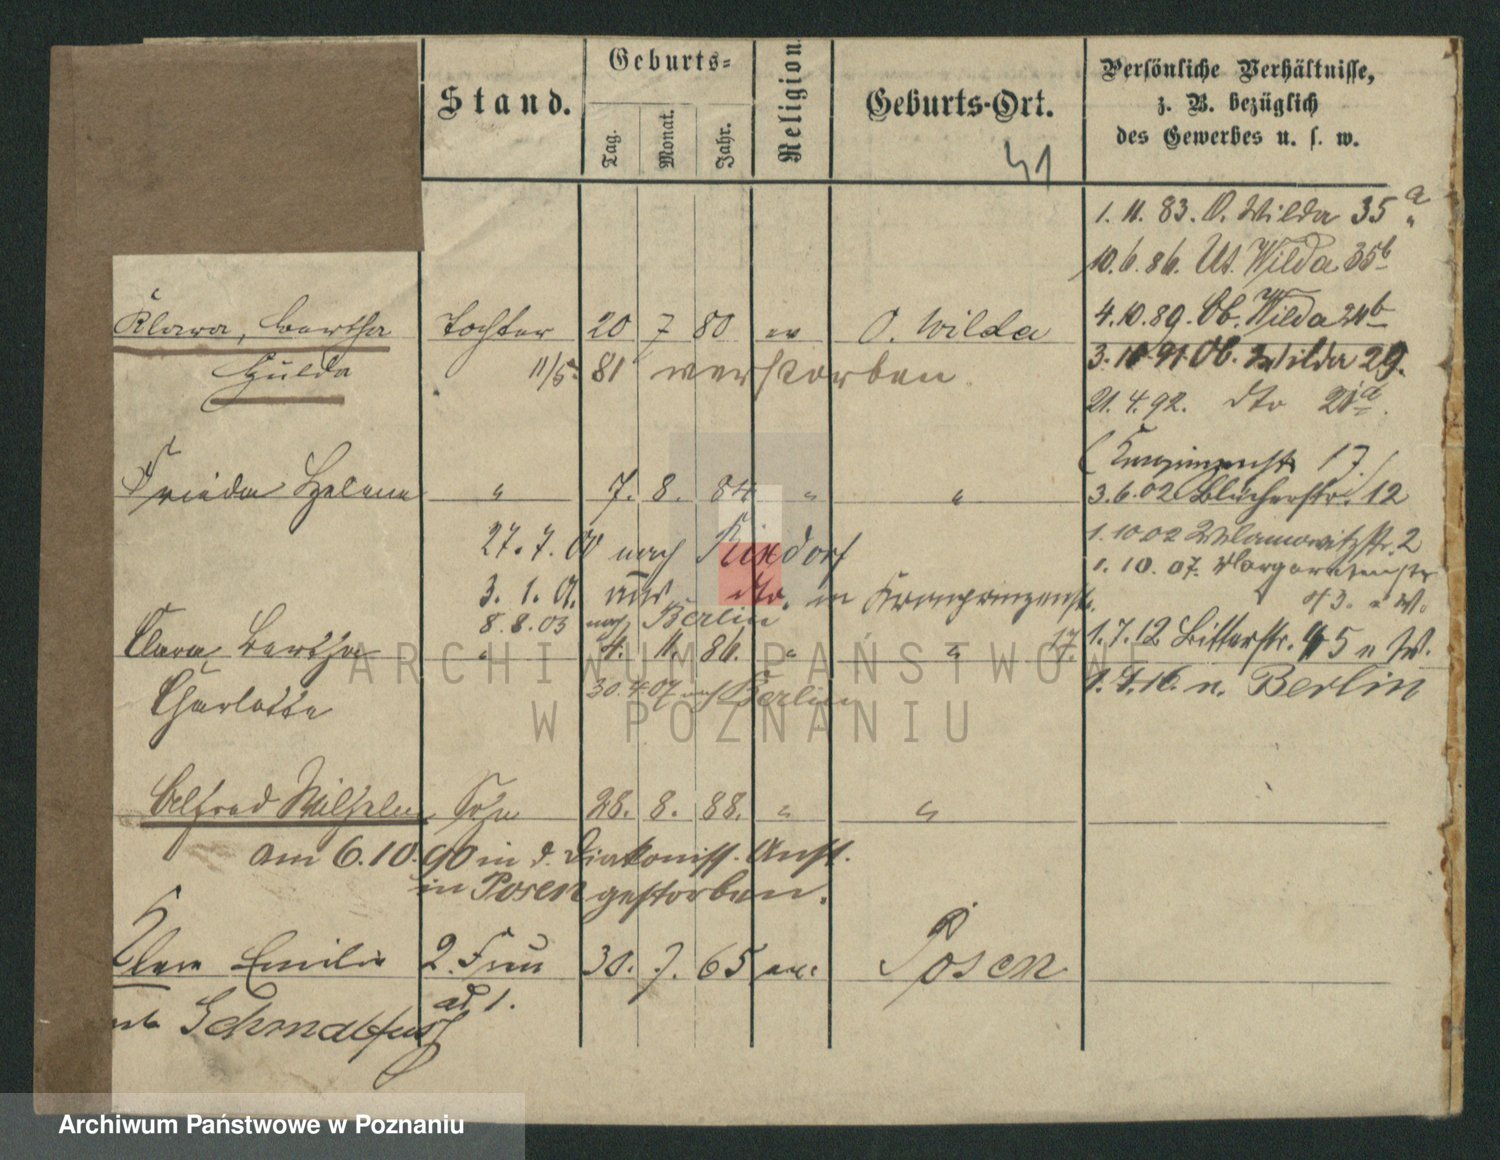 Stand.
Geburts-
Tag.
Monat.
Jahr.
Religion
Geburts-Ort.
Persönliche Verhältnisse,
z. B. bezüglich
des Gewerbes u. s. w.
41
1. 11. 83. O. Wilda 35 a
10. 6. 86. Ut. Wilda 35b
4. 10. 89. Ob. Wilda 24b
Klara, Bertha Tochter 20 7 80 ev O. Wilda
Hulda 11/5. 81 verstorben
3. 10 91 Ob. Wilda 29.
21. 4. 92. dto 21a.
17.
Frieda Helene " 7. 8. 84 " "
3. 6. 02 Blücherstr. 12
27. 7. 00 nach Rixdorf
1. 10 02 2
3. 1. 01. aus dto. in Kronprinzenstr.
1. 10. 07. Margaretenstr
8. 8. 03 nach Berlin 17.
Clara Bertha " 4. 11. 86. " "
1. 7. 12 Bitterstr. 45 n W.
Charlotte 30. 4 07 nach Berlin
1. 9. 16. n. Berlin
Alfred Wilhelm Sohn 28. 8. 88. " "
am 6. 10. 90 in d. Diakoniss. Anst.
in Posen gestorben.
Emilie 2. Frau 30. 7. 65 ev. Posen
ad 1.
ARCHIWUM PAŃSTWOWE
W POZNANIU
Archiwum Państwowe w Poznaniu